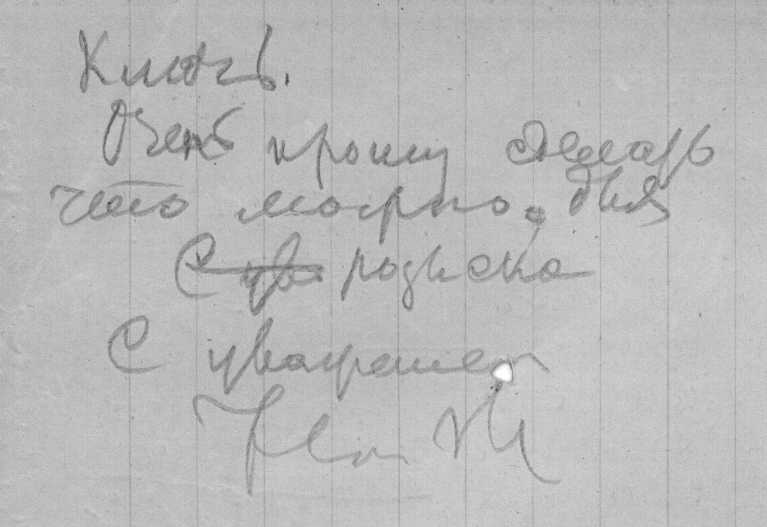 Князь.
Очень прошу сделать
что можно, для
С ув розыска
С уважением